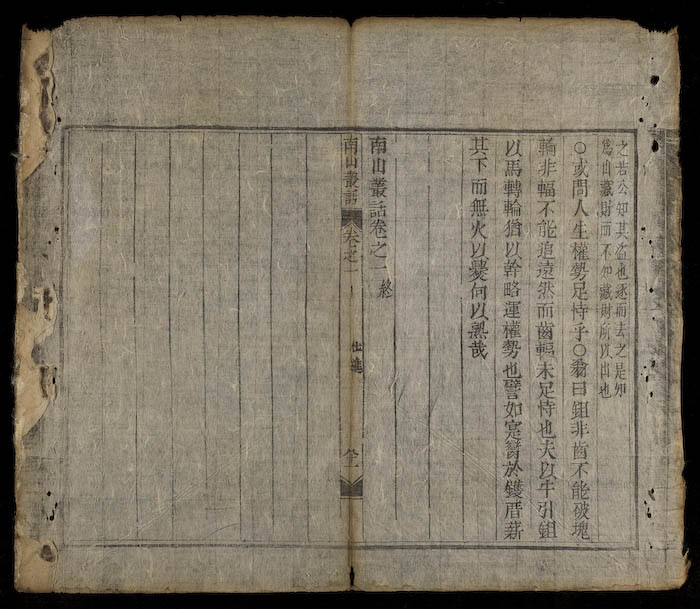 之若公知其盗也逐而去之是知
為山藏財而不知藏財所以出也
○或問人生權勢足恃乎○翁曰鉏非齒不能破塊
輪非輻不能追遠然而齒輻未足恃也夫以牛引鉏
以馬轉輪猶以幹略運權勢也譬如寔臠於鑊厝薪
其下而無火以爨何以熟哉
南山叢話卷之一終
南山叢話 卷之一 仕進